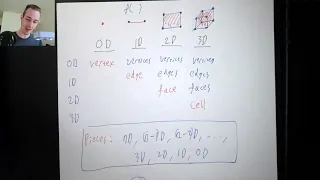 0D 1D 2D 3D
0D vertex vertices vertices vertices
1D edge edges edges
2D face faces
3D cell
Pieces: nD, (n-1)D, (n-2)D, ...,
3D, 2D, 1D, 0D